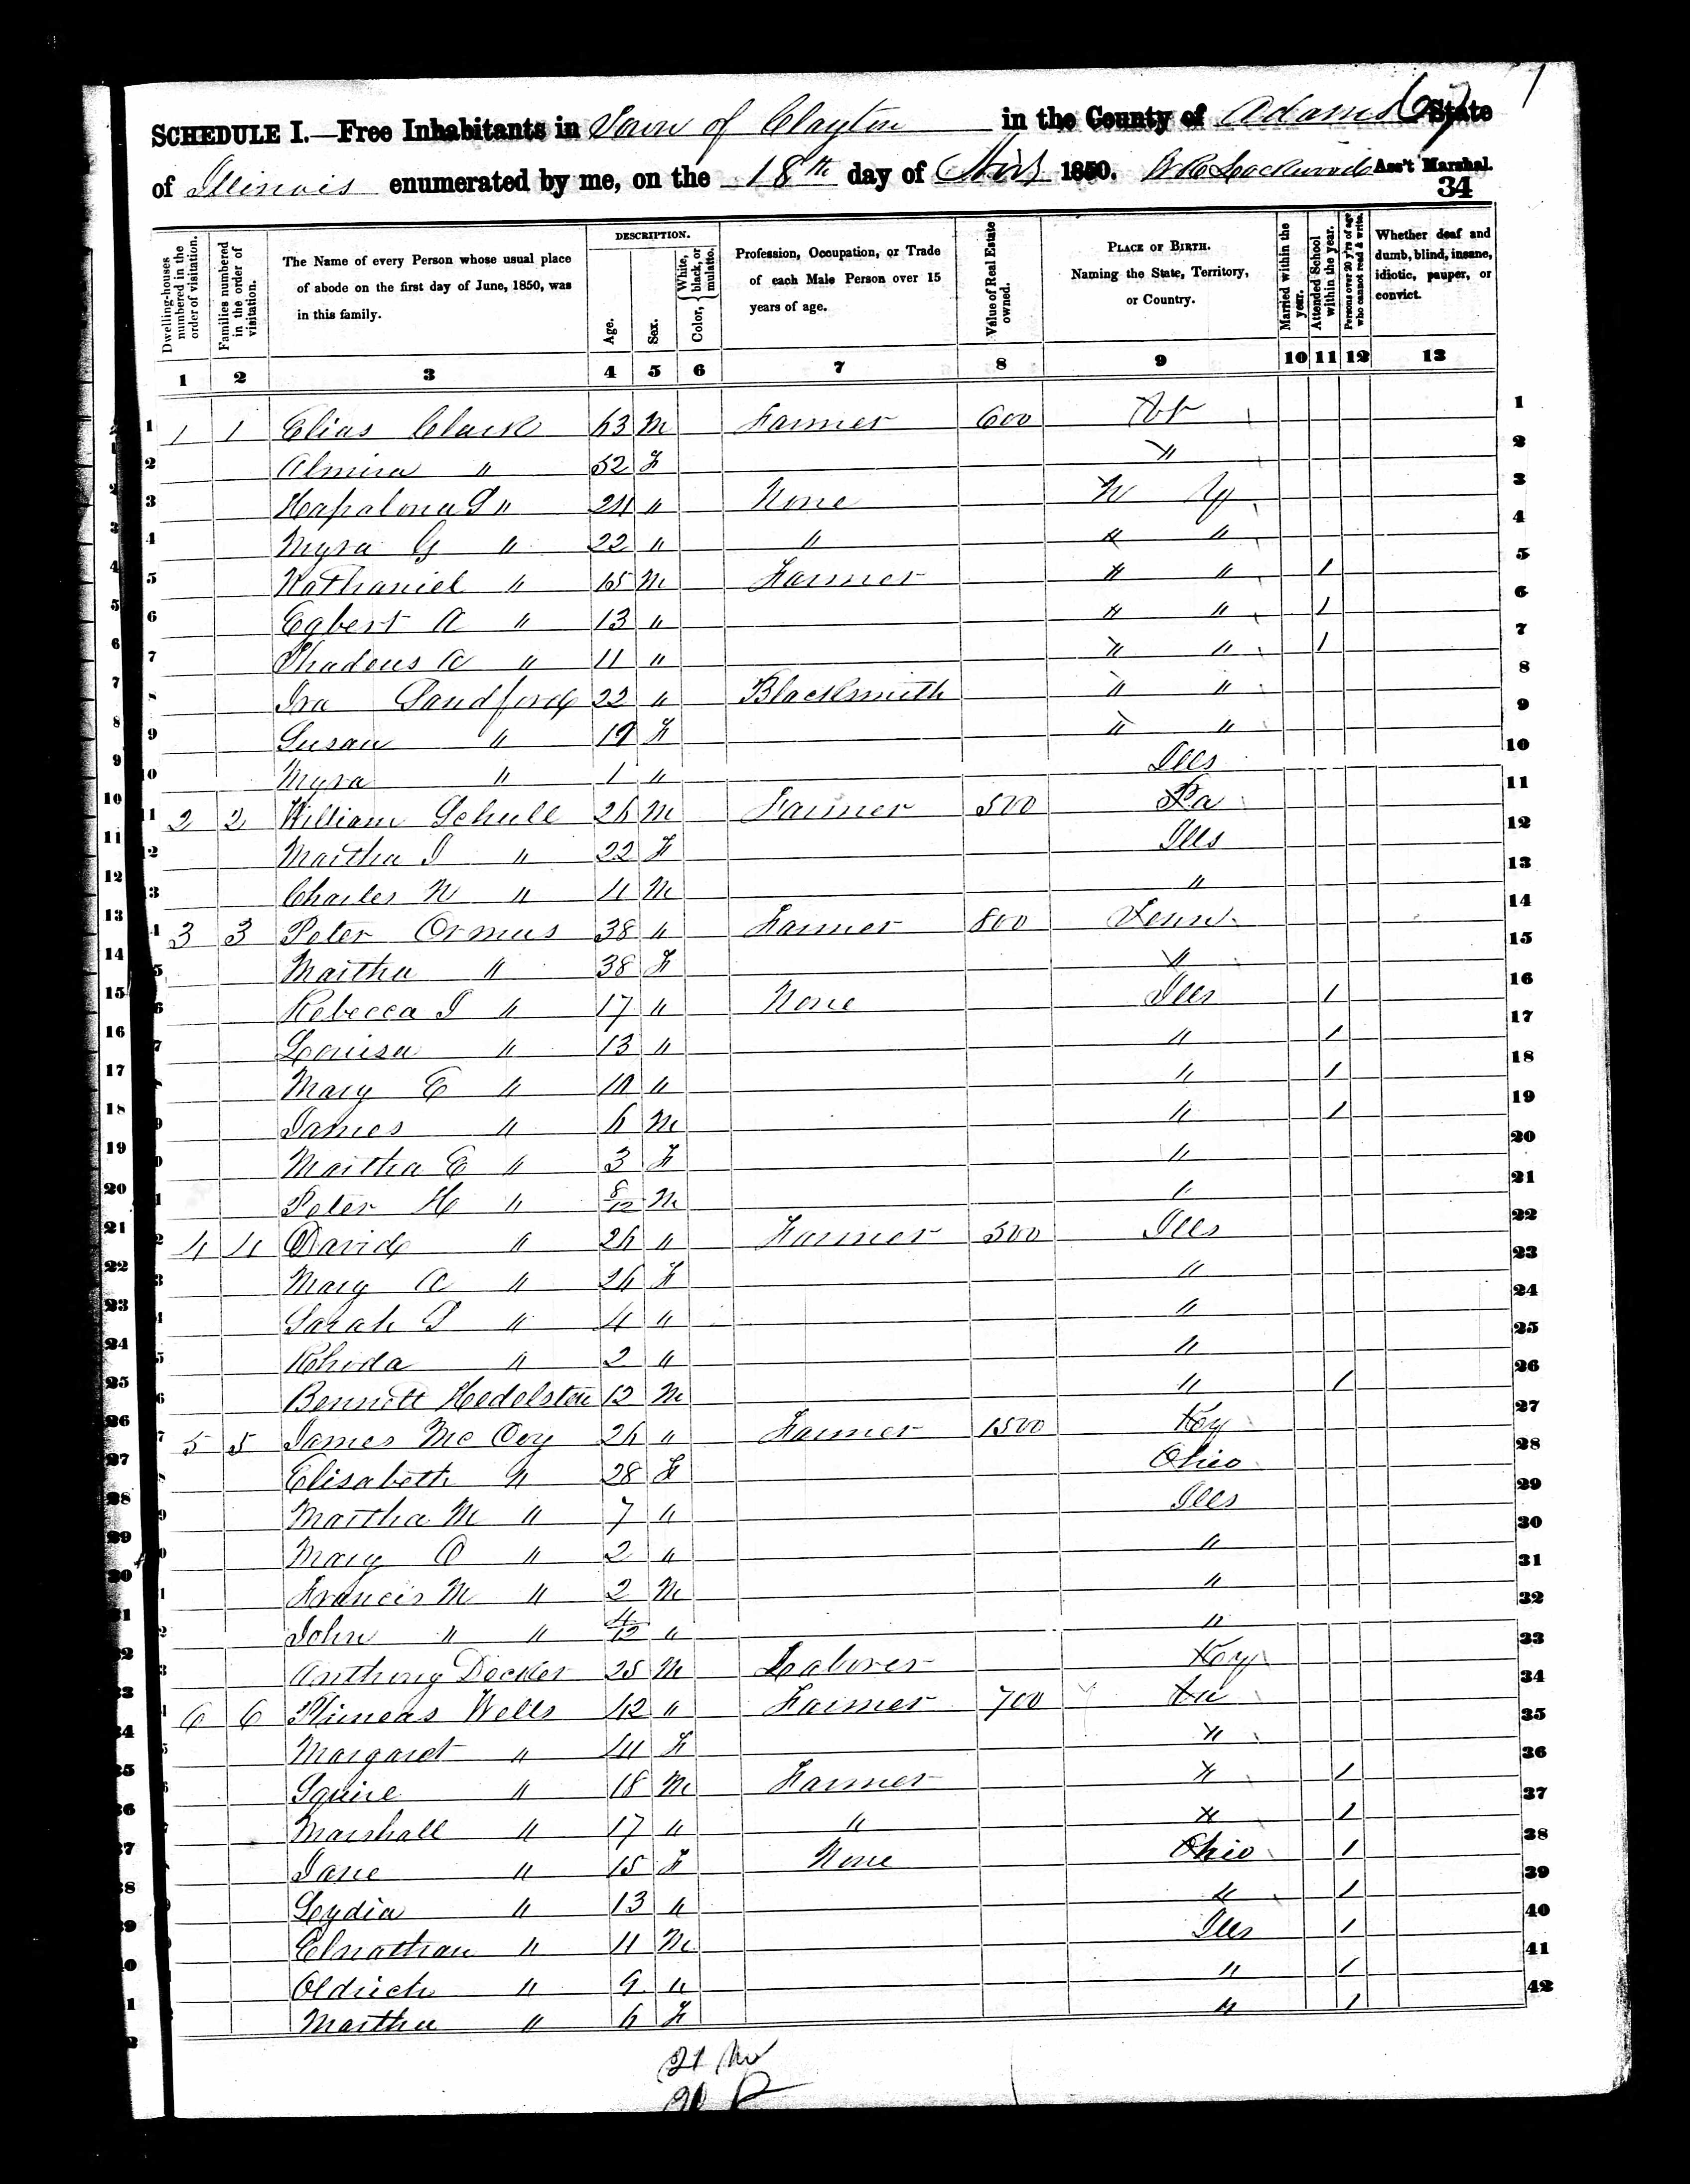 67 1
SCHEDULE I.—Free Inhabitants in Town of Clayton in the County of Adams State
of Illinois enumerated by me, on the 18th day of Nov 1850. Ass't Marshal.
34
Dwelling-houses numbered in the order of visitation.
Families numbered in the order of visitation.
The Name of every Person whose usual place of abode on the first day of June, 1850, was in this family.
DESCRIPTION.
Age.
Sex.
Color, { White, black, or mulatto.
Profession, Occupation, or Trade of each Male Person over 15 years of age.
Value of Real Estate owned.
PLACE OF BIRTH. Naming the State, Territory, or Country.
Married within the year.
Attended School within the year.
Persons over 20 y'rs of age who cannot read & write.
Whether deaf and dumb, blind, insane, idiotic, pauper, or convict.
1 2 3 4 5 6 7 8 9 10 11 12 13
1 1 1 Elias Clark 63 M Farmer 600 1
2 Almira " 52 F " 2
3 " 24 " None N Y 3
4 Myra G " 22 " " " " 4
5 Nathaniel " 15 M Farmer " " 1 5
6 Egbert A " 13 " " " 1 6
7 Thadeus A " 11 " " " 1 7
Ira Sandford 22 " Blacksmith " " 8
9 Susan " 19 F " " 9
10 Myra " 1 " Ills 10
11 2 2 William Schull 26 M Farmer 500 Pa 11
12 Martha J " 22 F Ills 12
13 Charles N " 4 M " 13
3 3 Peter Ormus 38 " Farmer 800 Tenn 14
Martha " 38 F " 15
Rebecca J " 17 " None Ills 1 16
Louisa " 13 " " 1 17
Mary E " 10 " " 1 18
James " 6 M " 1 19
Martha E " 3 F " 20
Peter H " 8/12 M " 21
4 4 David " 26 " Farmer 500 Ills 22
Mary A " 26 F " 23
Sarah J " 4 " " 24
Rhoda " 2 " " 25
Bennett Hedelston 12 M " 1 26
5 5 James Mc Coy 26 " Farmer 1500 Key 27
Elisabeth " 28 F Ohio 28
Martha M " 7 " Ills 29
Mary O " 2 " " 30
Francis M " 2 M " 31
John " " 4/12 " " 32
Anthony Decker 25 M Laborer Key 33
6 6 Phineas Wells 42 " Farmer 700 34
Margaret " 44 F " 35
Squire " 18 M Farmer " 1 36
Marshall " 17 " " " 1 37
Jane " 15 F None Ohio 1 38
Lydia " 13 " " 1 39
Elnathan " 11 M Ills 1 40
Oldrich " 9 " " 1 41
Martha " 6 F " 1 42
21 M